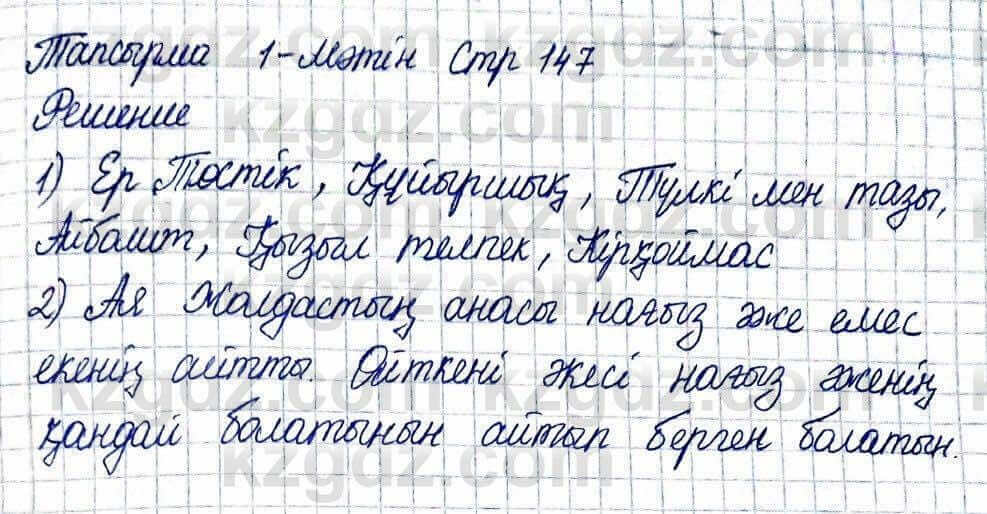 Тапсырма 1-Мәтін Стр 147
Решение
1) Ер Төстік, Құйыршық, Түлкі мен тазы,
Айболит, Қызыл телпек, Кірқоймас
2) Ая Жолдастың анасы нағыз әже емес
екенің айтты. Өйткені әкесі нағыз әженің
қандай болатынын айтып берген болатын.
kzgdz.com